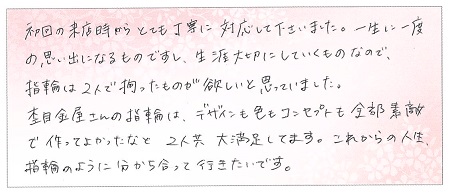 初回の来店時からとても丁寧に対応して下さいました。一生に一度
の思い出になるものですし、生涯大切にしていくものなので、
指輪は2人で拘ったものが欲しいと思っていました。
杢目金屋さんの指輪は、デザインも色もコンセプトも全部素敵
で作ってよかったなと 2人共 大満足してます。これからの人生、
指輪のように分かち合って行きたいです。